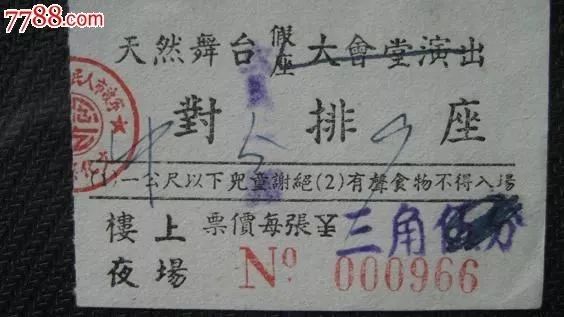 7788.com
天然舞台假座大會堂演出
對 5 排 座
(1)一公尺以下兒童謝絕(2)有聲食物不得入場
樓上 票價每張¥三角伍分
夜場 Nº 000966